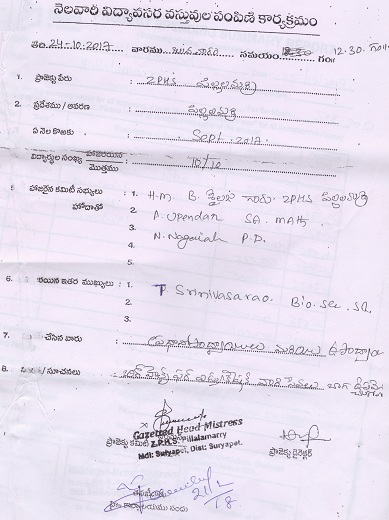 నెలవారి విద్యావసర వస్తువుల పంపిణి కార్యక్రమం
తేది 24-10-2017 వారము సమయం 12.30 గం॥
1. ప్రాజెక్టు పేరు : ZPHS పిల్లలమర్రి
2. ప్రదేశము / ఆవరణ : పిల్లలమర్రి
ఏ నెల కొఱకు : Sept. 2017
విద్యార్ధుల సంఖ్య హాజరయిన / మొత్తము : 10/10
హాజరైన కమిటీ సభ్యులు : 1. H.M. B. శైలజ గారు. ZPHS పిల్లలమర్రి
హోదాతో 2. P. Upendar SA. Maths
3. N. Nagaiah P.D.
4.
5.
6. ఇతర ముఖ్యులు : 1. T Srinivasarao. Bio. Sci. SA.
2.
3.
7. చేసిన వారు :
8. / సూచనలు :
Gazetted Head Mistress
ప్రాజెక్టు కమిటీ Z.P.H.S. Pillalamarry
Mdl: Suryapet, Dist: Suryapet.
ప్రాజెక్టు డైరెక్టర్